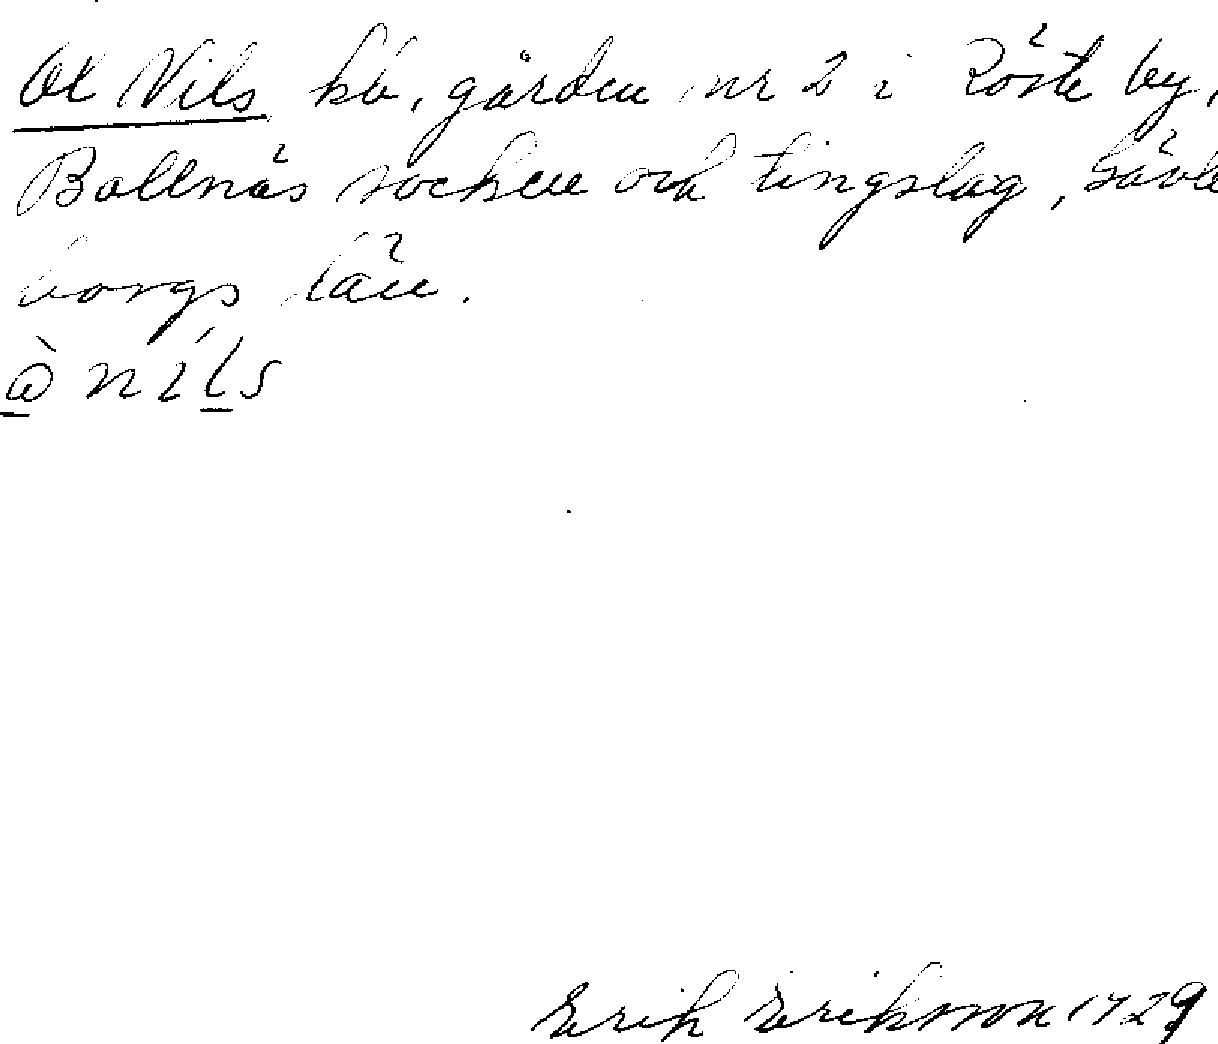 Ol Nils kb, gården nr 2 i Röste by,
Bollnäs socken och tingslag, Gävle
borgs län.
ò nìls
Erik Eriksson 1729